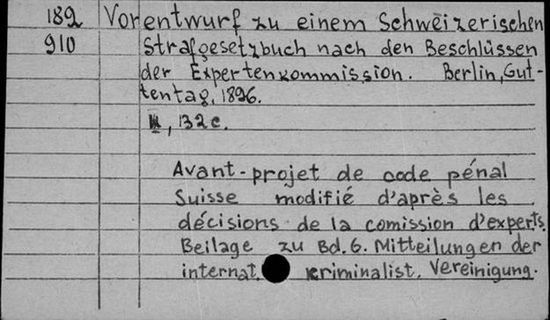 189 Vorentwurf zu einem Schweizerischen
910 Strafgesetzbuch nach den Beschlüssen
der Expertenkommission. Berlin, Gut-
tentag, 1896.
, 132 c.
Avant-projet de code pénal
Suisse modifié d'après les
décisions de la comission d'experts.
Beilage zu Bd. 6. Mitteilungen der
internat. kriminalist. Vereinigung.